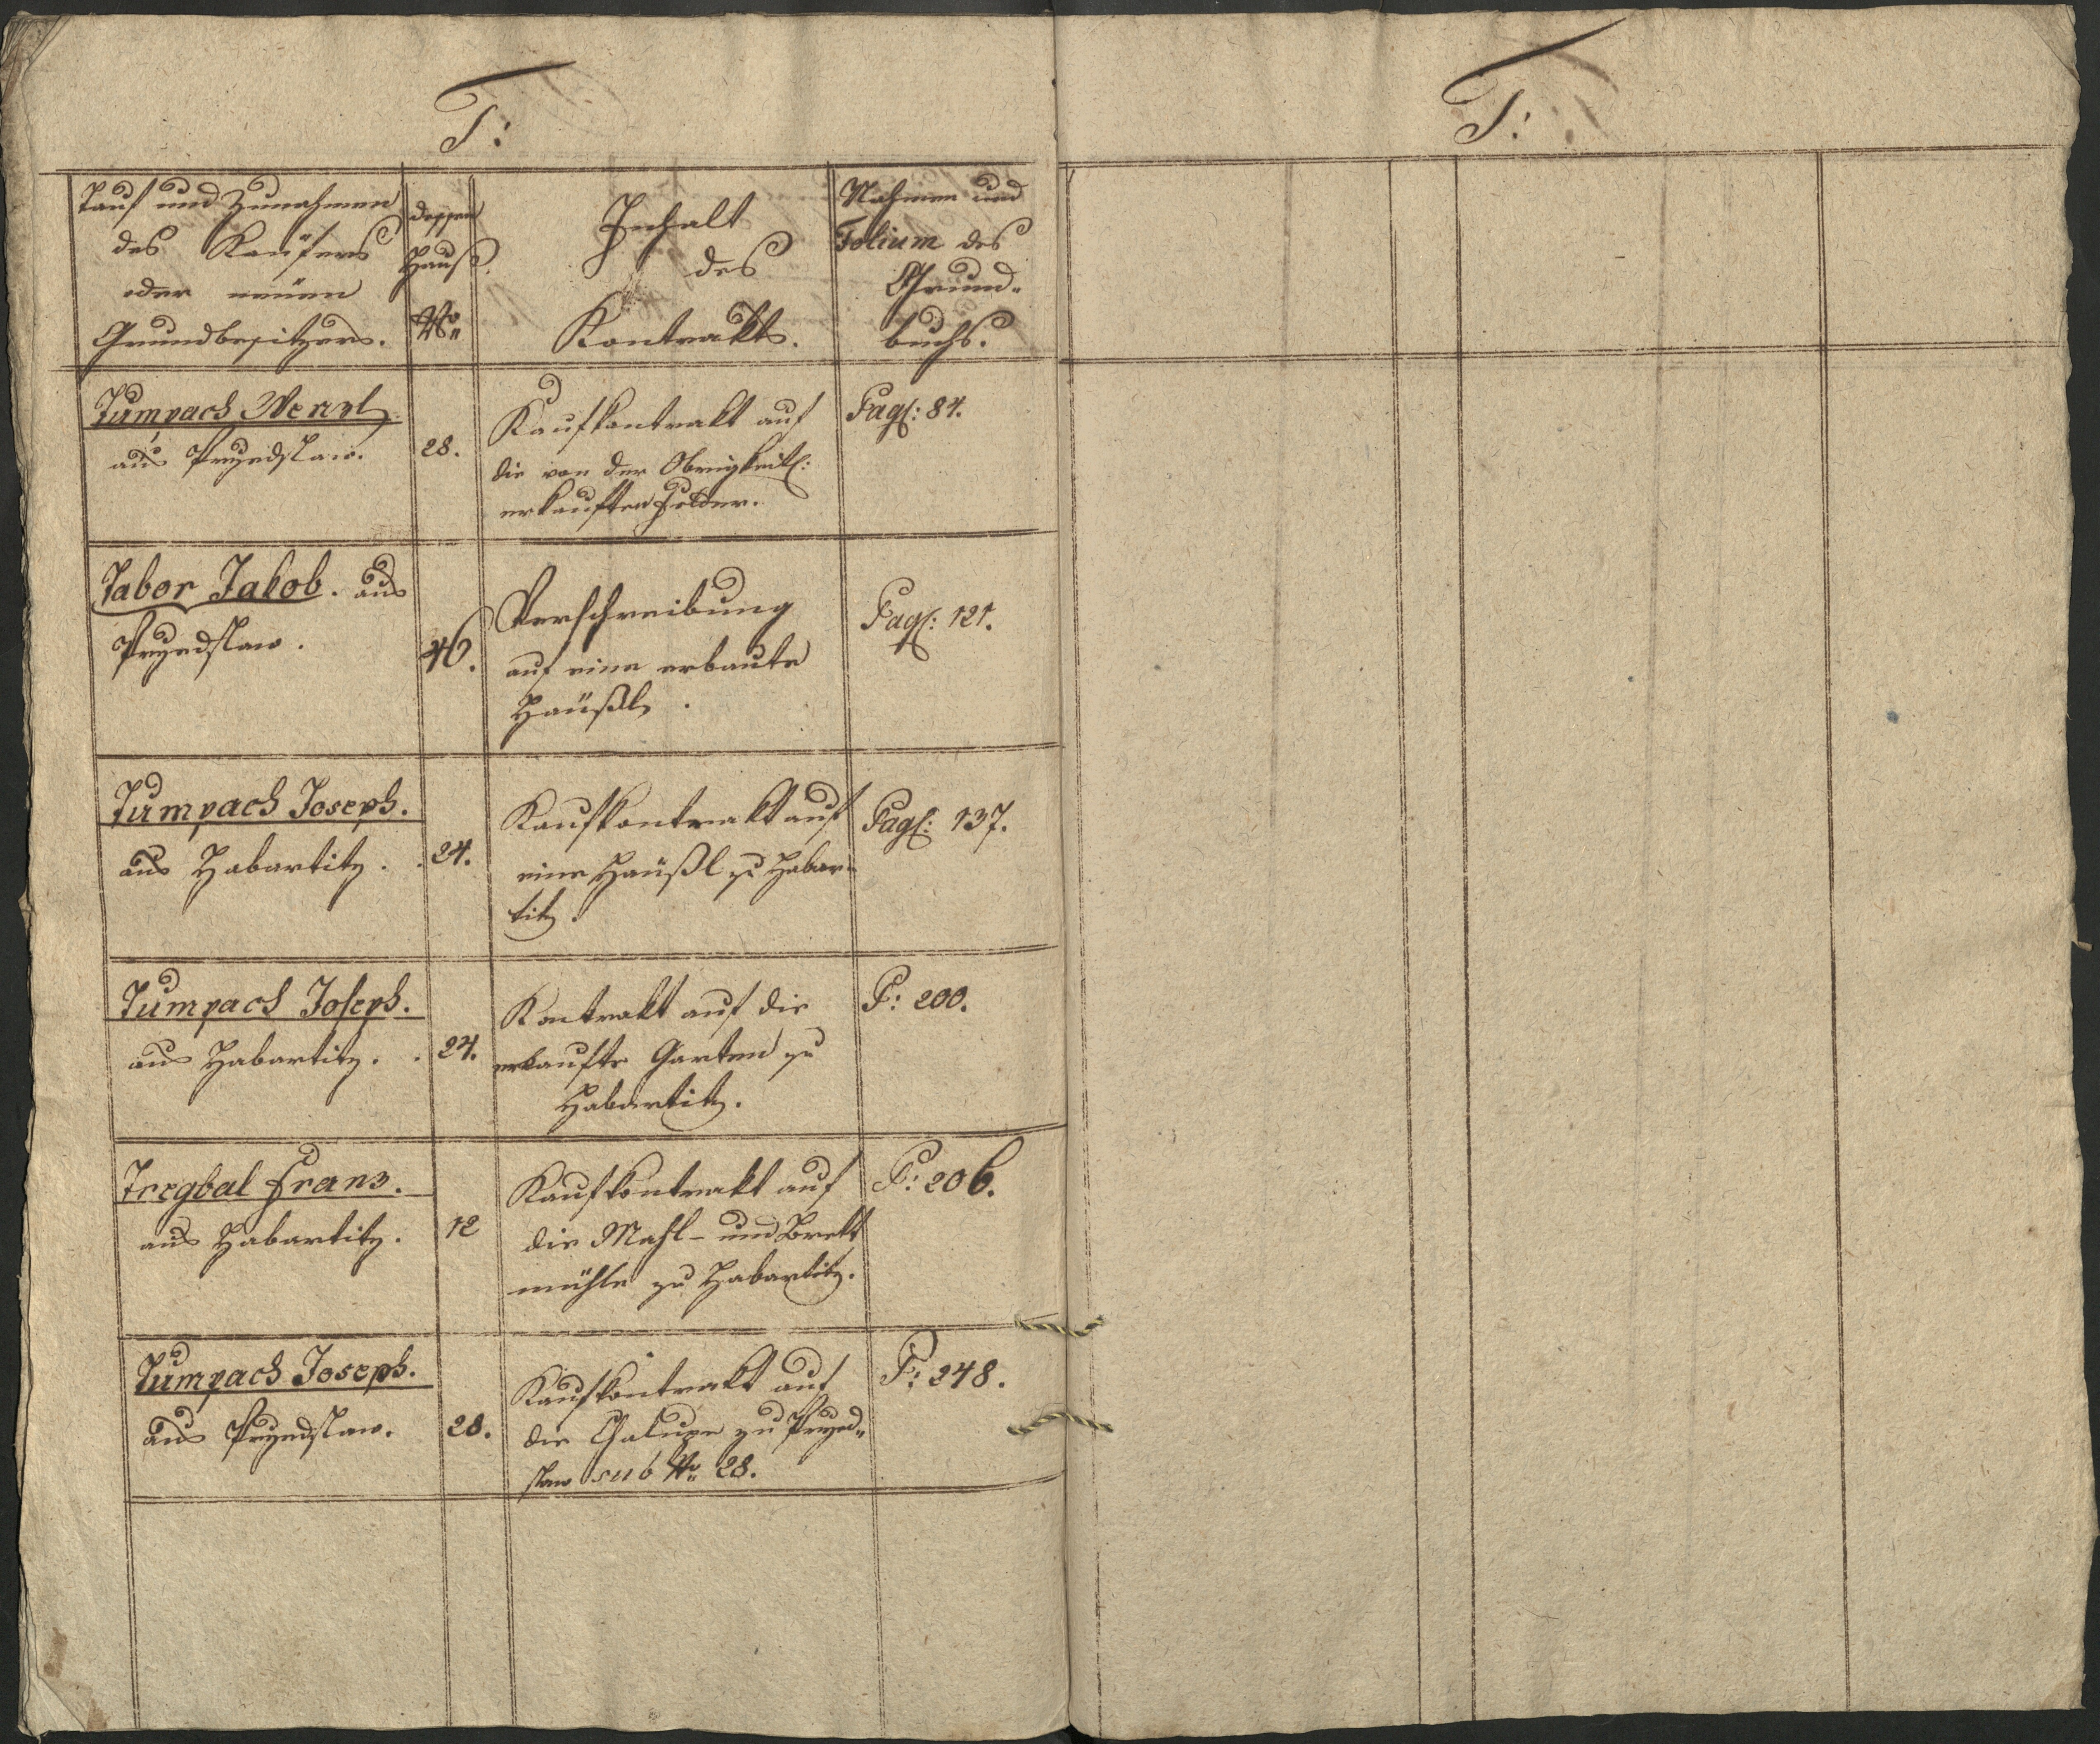 T:
Tauf und Zunahmen
des Käufers
oder neüen
Grundbesitzers.
dessen
Hauß
No
Inhalt
des
Kontrakts.
Nahmen und
Folium des
Grund-
buchs.
Tumpach Wenzl
aus Przedslaw.
28.
Kaufkontrakt auf
die von der Obrigkeit:
erkauften Felder.
Pag: 84.
Tabor Jakob. aus
Przedslaw.
46.
Verschreibung
auf eine erbaute
Haüßl.
Pag: 121.
Tumpach Joseph.
aus Habartitz.
24.
Kaufkontrakt auf
eine Haüßl zu Habar-
titz.
Pag: 137.
Tumpach Joseph.
aus Habartitz.
24.
Kontrakt auf die
erkaufte Garten zu
Habartitz.
P: 200.
Tregbal Franz.
aus Habartitz.
12
Kaufkontrakt auf
die Mahl- und Brett
mühle zu Habartitz.
P: 206.
Tumpach Joseph.
aus Przedslaw.
28.
Kaufkontrakt auf
die Chalupe zu Przed-
slaw sub No 28.
P: 248.
T: